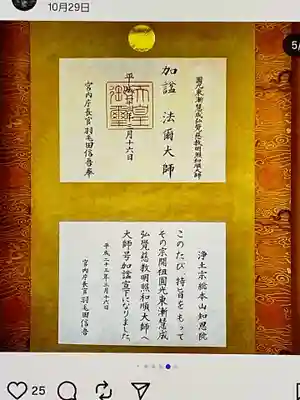 10月29日
5/
圓光東漸慧成弘覺慈教明照和順大師
加諡 法爾大師
平成廿三年三月十六日
天皇御璽
宮内庁長官羽毛田信吾奉
浄土宗総本山知恩院
このたび、特旨をもって
その宗開祖圓光東漸慧成
弘覺慈教明照和順大師へ
大師号加諡宣下になりました。
平成二十三年三月十六日
宮内庁長官羽毛田信吾
25